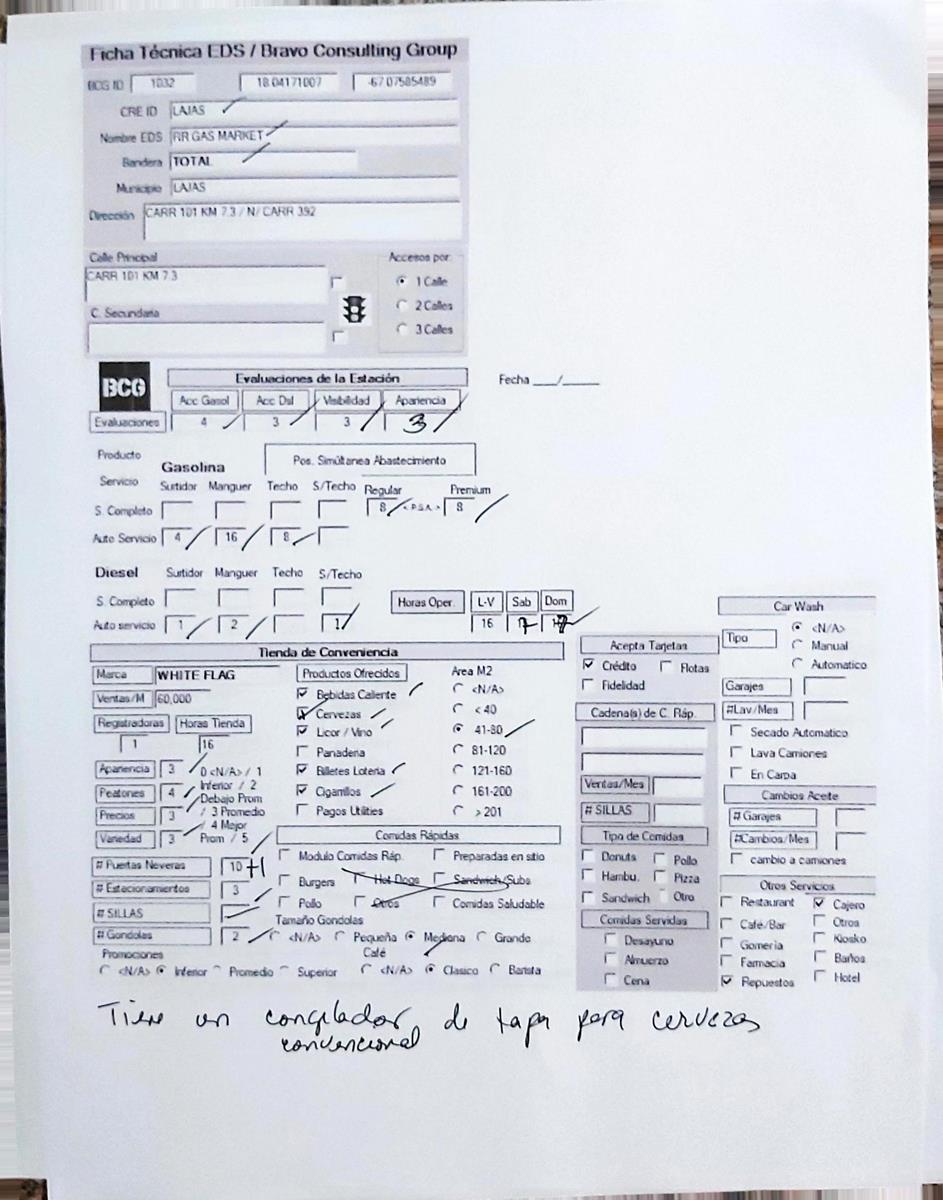 Ficha Técnica EDS / Bravo Consulting Group
BCG ID 1032 18.04171007 -67.07585489
CRE ID LAJAS
Nombre EDS RR GAS MARKET
Bandera TOTAL
Municipio LAJAS
Dirección CARR 101 KM 7.3 / N/ CARR 392
Calle Principal Accesos por:
CARR 101 KM 7.3 1 Calle
2 Calles
C. Secundaria
3 Calles
BCG Evaluaciones de la Estación Fecha ___/_____
Acc Gasol Acc Dsl Visibilidad Apariencia
Evaluaciones 4 3 3 3
Producto Gasolina Pos. Simúltanea Abastecimiento
Servicio Surtidor Manguer Techo S/Techo Regular Premium
S. Completo 8 < P.S.A. > 8
Auto Servicio 4 16 8
Diesel Surtidor Manguer Techo S/Techo
S. Completo Horas Oper. L-V Sab Dom
Auto servicio 1 2 1 16
Tienda de Conveniencia
Marca WHITE FLAG
Ventas/M 60,000
Registradoras Horas Tienda
1 16
Apariencia 3 0 <N/A> / 1
Peatones 4 Inferior / 2
Debajo Prom
Precios 3 / 3 Promedio
/ 4 Mejor
Variedad 3 Prom / 5
# Puertas Neveras 10 +1
# Estacionamientos 3
# SILLAS
# Gondolas 2
Promociones
<N/A> Inferior Promedio Superior
Productos Ofrecidos
Bebidas Caliente
Cervezas
Licor / Vino
Panaderia
Billetes Loteria
Cigarrillos
Pagos Utilities
Area M2
<N/A>
< 40
41-80
81-120
121-160
161-200
> 201
Comidas Rápidas
Modulo Comidas Ráp. Preparadas en sitio
Burgers Hot Dogs Sandwich/Subs
Pollo Otros Comidas Saludable
Tamaño Gondolas
<N/A> Pequeña Mediana Grande
Café
<N/A> Clasico Barista
Acepta Tarjetas
Crédito Flotas
Fidelidad
Cadena(s) de C. Ráp.
Ventas/Mes
# SILLAS
Tipo de Comidas
Donuts Pollo
Hambu. Pizza
Sandwich Otro
Comidas Servidas
Desayuno
Almuerzo
Cena
Car Wash
Tipo <N/A>
Manual
Automatico
Garajes
#Lav/Mes
Secado Automatico
Lava Camiones
En Carpa
Cambios Aceite
# Garajes
#Cambios/Mes
cambio a camiones
Otros Servicios
Restaurant Cajero
Café/Bar Otros
Gomeria Kiosko
Farmacia Baños
Repuestos Hotel
Tiene un congelador de tapa para cervezas
convencional